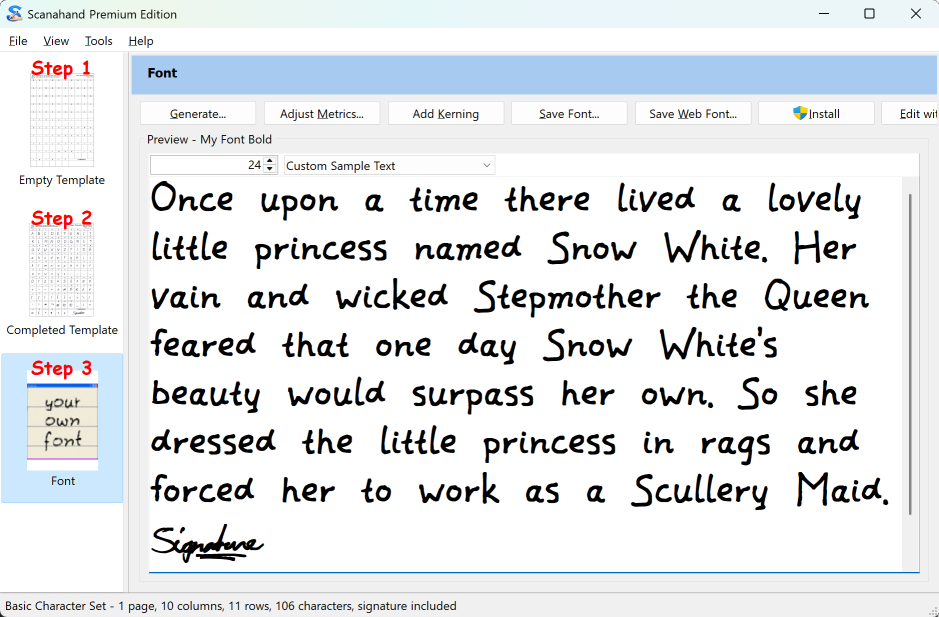 Scanahand Premium Edition
File View Tools Help
Step 1
Empty Template
Step 2
Completed Template
Step 3
your
own
font
Font
Font
Generate... Adjust Metrics... Add Kerning Save Font... Save Web Font... Install Edit wit
Preview - My Font Bold
24 Custom Sample Text
Once upon a time there lived a lovely
little princess named Snow White. Her
vain and wicked Stepmother the Queen
feared that one day Snow White's
beauty would surpass her own. So she
dressed the little princess in rags and
forced her to work as a Scullery Maid.
Signature
Basic Character Set - 1 page, 10 columns, 11 rows, 106 characters, signature included